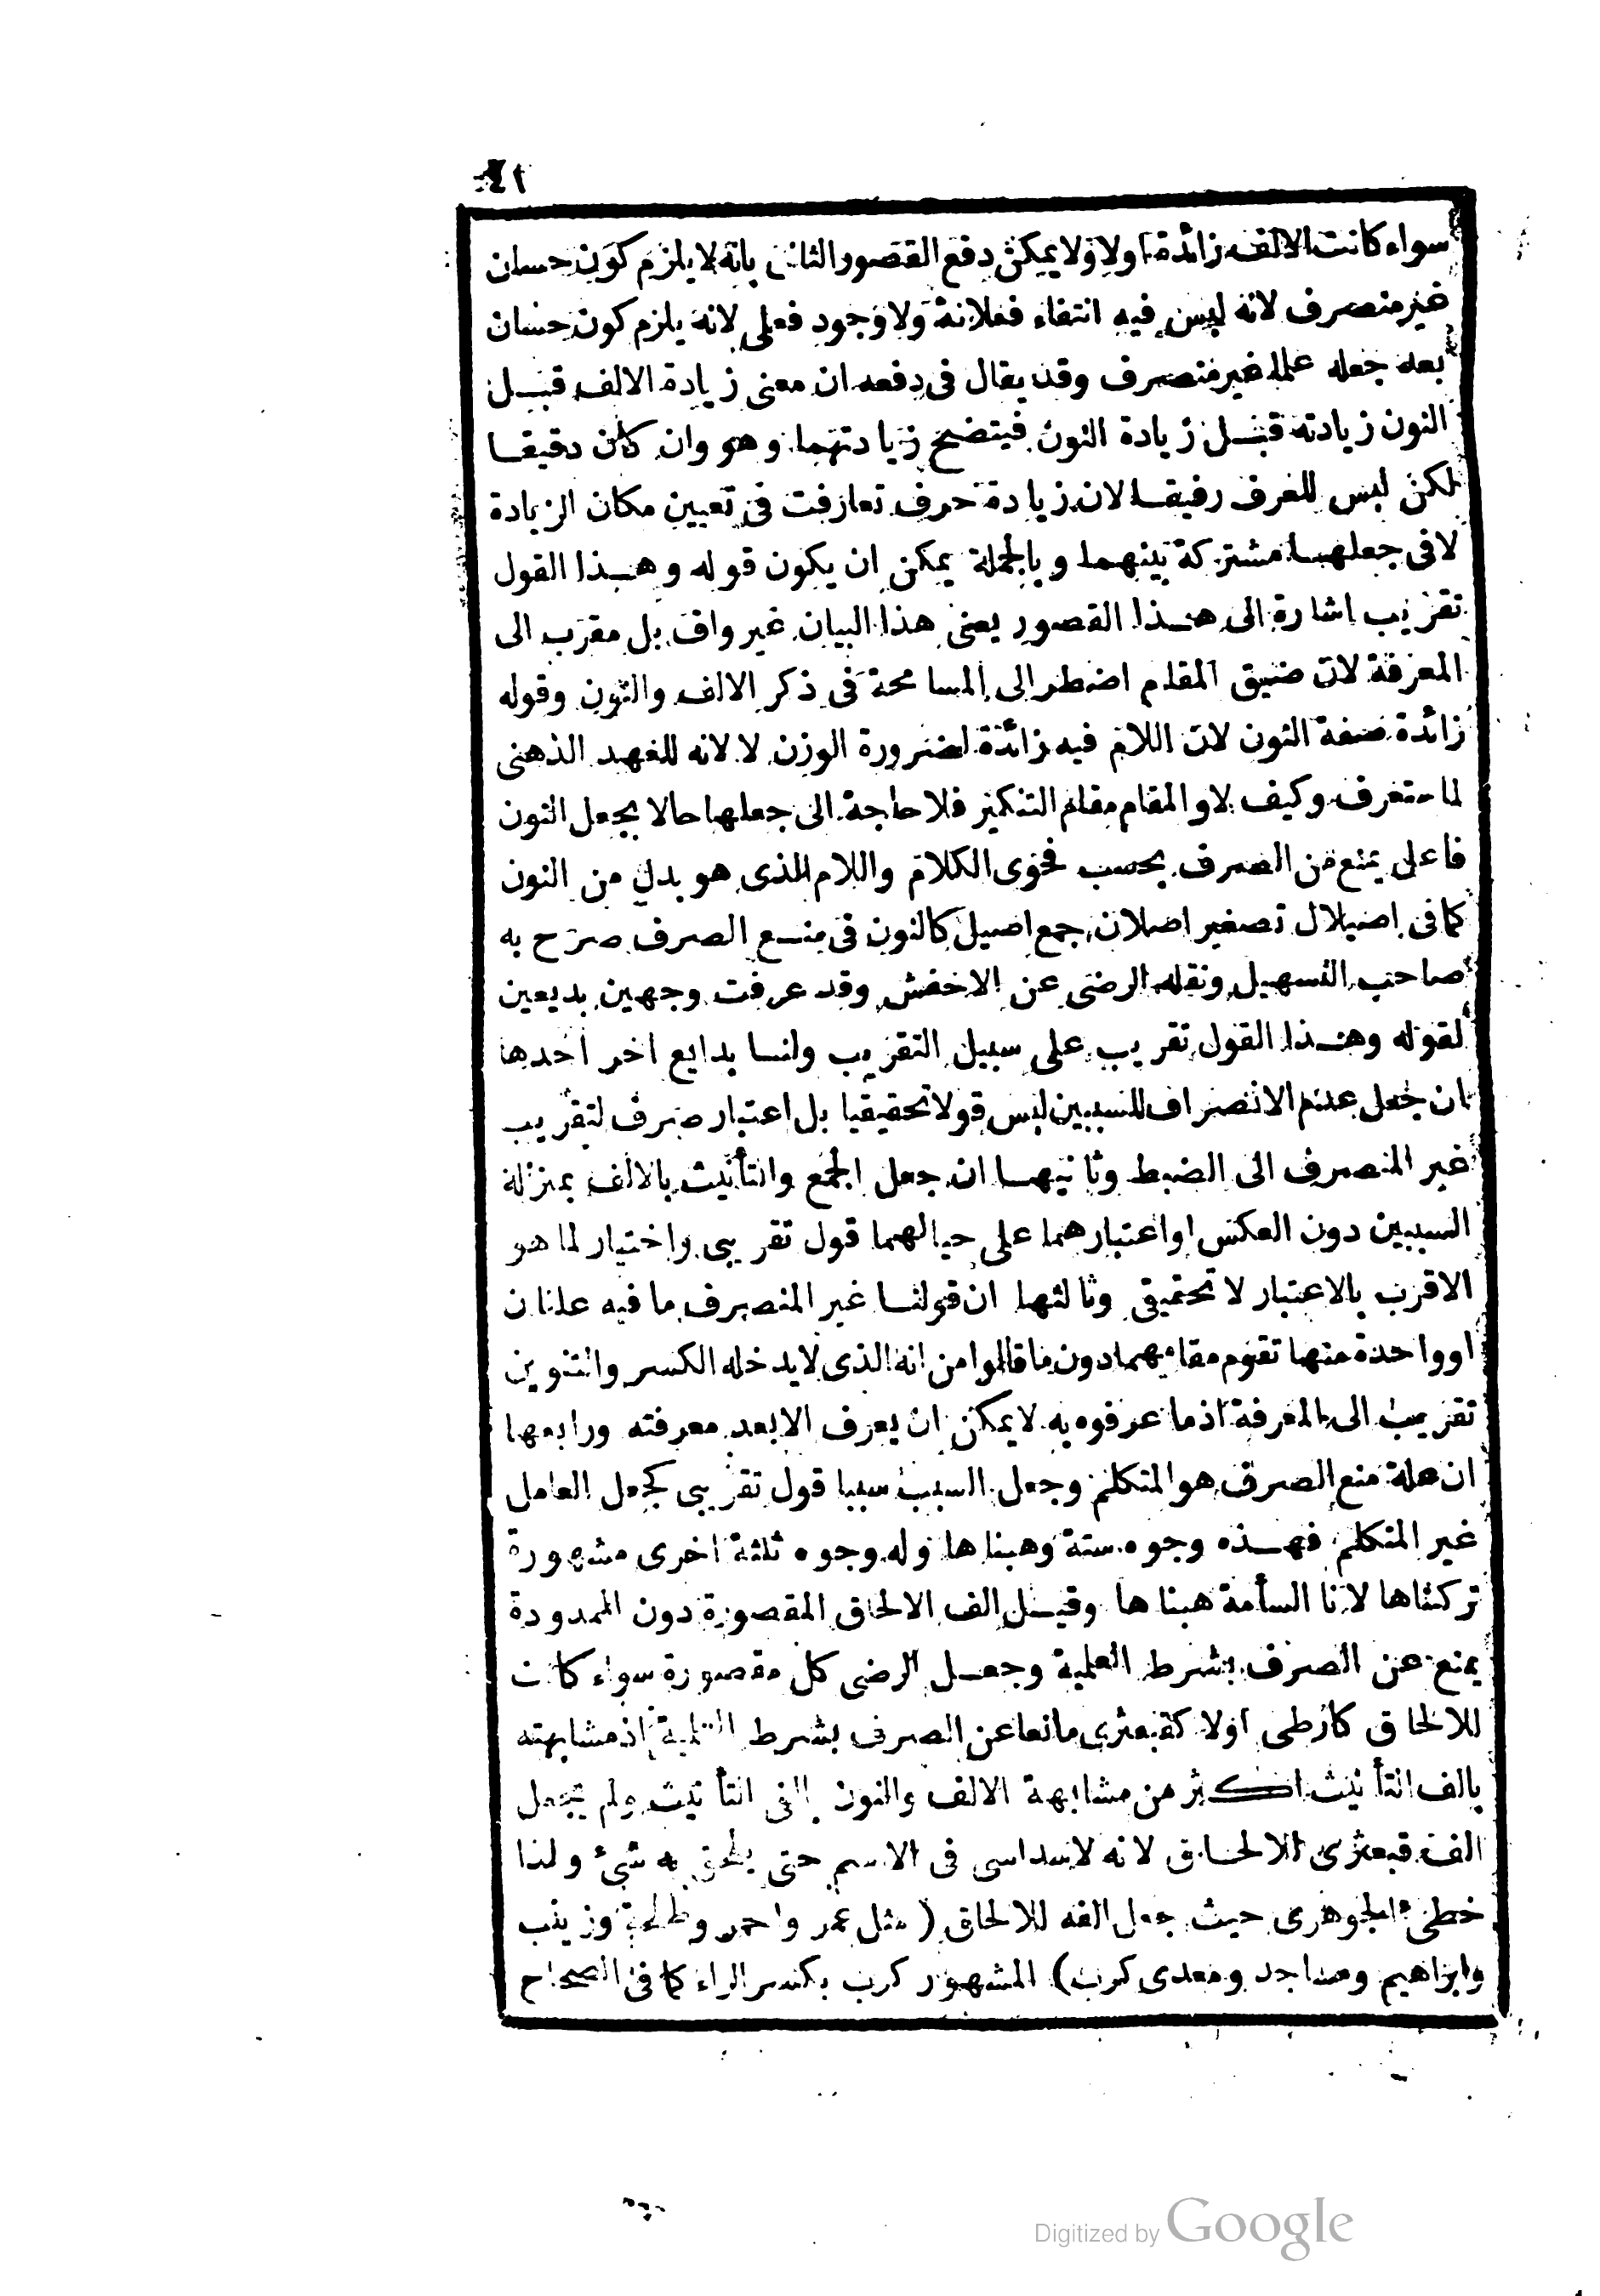 ٤١
سواء كانت الالف زائدة اولا ولا يمكن دفع القصور الثانى بانه لا يلزم كون حسان
غير منصرف لانه ليس فيه انتفاء فعلانة ولا وجود فعلى لانه يلزم كون حسان
بعد جعله علما غير منصرف وقد يقال فى دفعه ان معنى زيادة الالف قبل
النون زيادته قبل زيادة النون فيتضح زيادتهما وهو وان كان دقيقا
لكن ليس للعرف رفيقا لان زيادة حرف تعارفت فى تعيين مكان الزيادة
لا فى جعلها مشتركة بينهما وبالجملة يمكن ان يكون قوله وهذا القول
تقريب اشارة الى هذا القصور يعنى هذا البيان غير واف بل مقرب الى
المعرفة لان ضيق المقام اضطر الى المسامحة فى ذكر الالف والنون وقوله
زائدة صفة النون لان اللام فيه زائدة لضرورة الوزن لا لانه للعهد الذهنى
لما ستعرف وكيف لا والمقام مقام التنكير فلا حاجة الى جعلها حالا بجعل النون
فاعل يمنع من الصرف بحسب فحوى الكلام واللام الذى هو بدل من النون
كما فى اصيلال تصغير اصلان جمع اصيل كالنون فى منع الصرف صرح به
صاحب التسهيل ونقله الرضى عن الاخفش وقد عرفت وجهين بديعين
لقوله وهذا القول تقريب على سبيل التقريب ولنا بدايع اخر احدها
ان جعل عدم الانصراف للسببين ليس قولا تحقيقيا بل اعتبار صرف لتقريب
غير المنصرف الى الضبط وثانيها ان جعل الجمع والتأنيث بالالف بمنزلة
السببين دون العكس او اعتبارهما على حيالهما قول تقريبى واختيار لما هو
الاقرب بالاعتبار لا تحقيقى وثالثها ان قولنا غير المنصرف ما فيه علتان
او واحدة منها تقوم مقامهما دون ما قالوا من انه الذى لا يدخله الكسر والتنوين
تقريب الى المعرفة اذ ما عرفوه به لا يمكن ان يعرف الا بعد معرفته ورابعها
ان علة منع الصرف هو المتكلم وجعل السبب سببا قول تقريبى كجعل العامل
غير المتكلم فهذه وجوه ستة وهبناها وله وجوه ثلثة اخرى مشهورة
تركناها لانا السأمة هبناها وقيل الف الالحاق المقصورة دون الممدودة
يمنع عن الصرف بشرط العلمية وجعل الرضى كل مقصورة سواء كانت
للالحاق كارطى اولا كقبعثرى مانعا عن الصرف بشرط العلمية اذ مشابهته
بالف التأنيث اكثر من مشابهة الالف والنون الفى التأنيث ولم يجعل
الف قبعثرى للالحاق لانه لا سداسى فى الاسم حتى يلحق به شئ ولذا
خطئ الجوهرى حيث جعل الفه للالحاق ( مثل عمر واحمر وطلحة وزينب
وابراهيم ومساجد ومعدى كرب) المشهور كرب بكسر الراء كما فى الصحاح
Digitized by Google